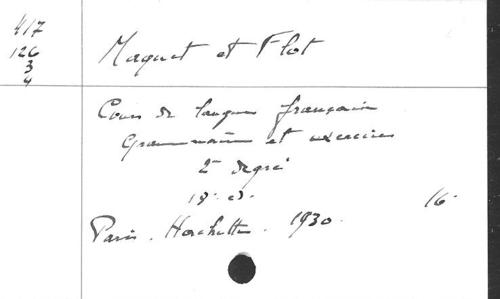 417
126
3
4
Maquet et Flot
Cours de langue française
Grammaire et exercices
2e degré
19e ed.
16
Paris. Hachette. 1930.